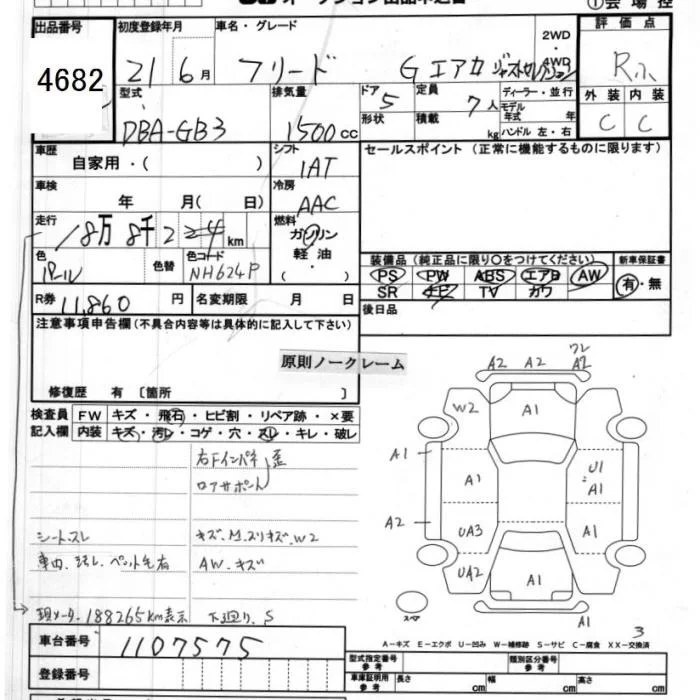 オークション出品申込書
①会場控
出品番号 初度登録年月 車名・グレード 2WD・4WD 評価点
4682 21年6月 フリード G エアロ R
型式 排気量 ドア 5 定員 7人 ディーラー・並行
DBA-GB3 1500cc 形状 積載 kg モデル年式 年式
ハンドル 左・右
外装 内装
C C
車歴 自家用・( ) シフト IAT セールスポイント(正常に機能するものに限ります)
車検 年 月( 日) 冷房 AAC
走行 18万8千 km 燃料 ガソリン 軽油・( )
色 色替 色コード NH624P
装備品(純正品に限り○をつけてください) 新車保証書
PS PW ABS エアB AW 有・無
SR ナビ TV カワ
R券 11,860円 名変期限 月 日 後日品
注意事項申告欄(不具合内容等は具体的に記入して下さい)
原則ノークレーム
修復歴 有 〔箇所 〕
検査員記入欄 FW キズ・飛石・ヒビ割・リペア跡・×要
内装 キズ・汚レ・コゲ・穴・スレ・キレ・破レ
右Fインパネ 歪
ロアサポート
シートスレ キズ.M.スリキズ.W2
車内.汚レ.ペット毛有 AW.キズ
現メーター188265km表示 下廻り.S
A2 A2 ワレ A2
W2 A1
A1 A1 U1 A1
A2 UA3 A1
UA2 A1
A1
スペア
3
A-キズ E-エクボ U-凹み W-補修跡 S-サビ C-腐食 XX-交換済
車台番号 1107575
登録番号
型式指定番号 参考 類別区分番号 参考
車庫証明用 参考 長さ cm 幅 cm 高さ cm